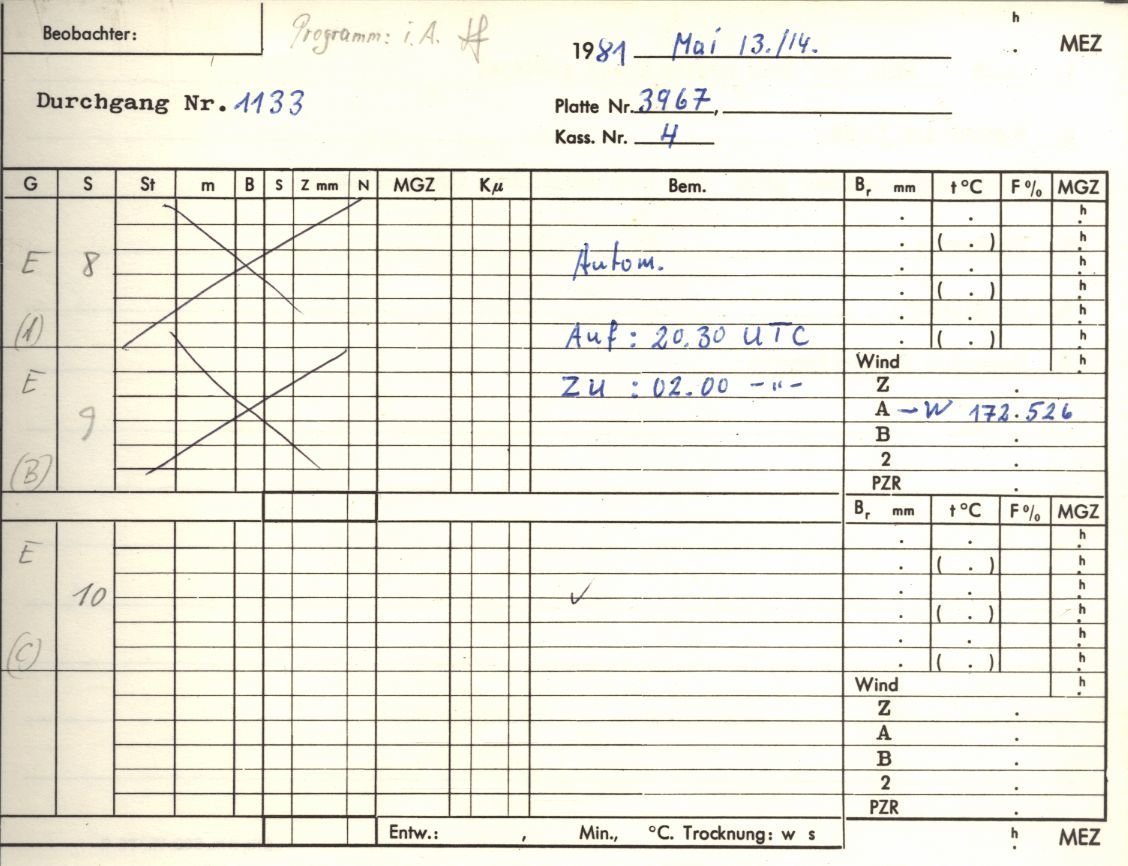 Beobachter:
Programm: i. A.
1981 Mai 13./14.
h
. MEZ
Durchgang Nr. 1133
Platte Nr. 3967,
Kass. Nr. 4
G S St m B S Z mm N MGZ Kμ Bem. Br mm t °C F % MGZ
. . h
. ( . ) h
E 8 Autom. . . h
. ( . ) h
. . h
(A) Auf : 20.30 UTC . ( . ) h
Wind h
E Zu : 02.00 -"- Z .
9 A -W 172.526
B .
2 .
(B) PZR .
Br mm t °C F % MGZ
. . h
E . ( . ) h
10 ✓ . . h
. ( . ) h
. . h
(C) . ( . ) h
Wind h
Z .
A .
B .
2 .
PZR .
Entw.: , Min., °C. Trocknung: w s h
. MEZ